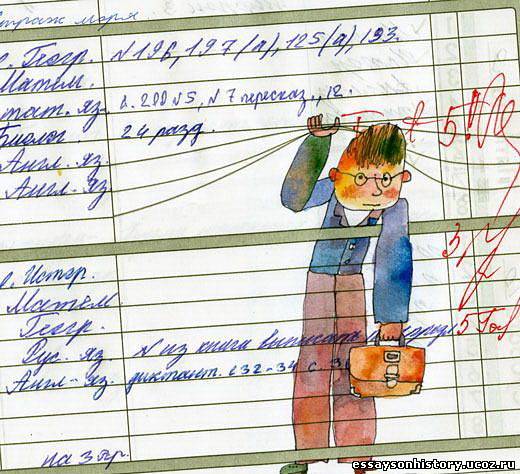 Страж моря
Геогр. №196, 197(а), 125(а), 193.
Матем.
тат. яз. с. 200 №5, №7 пересказ., 12.
Биолог. 24 разд. 5
Англ. яз
Англ-яз
3
Истор.
Матем
Геогр. 5
Рус. яз. № из книга выписать
Англ-яз. диктант. с 32-34 с. 3
на 3 гр.
essaysonhistory.ucoz.ru